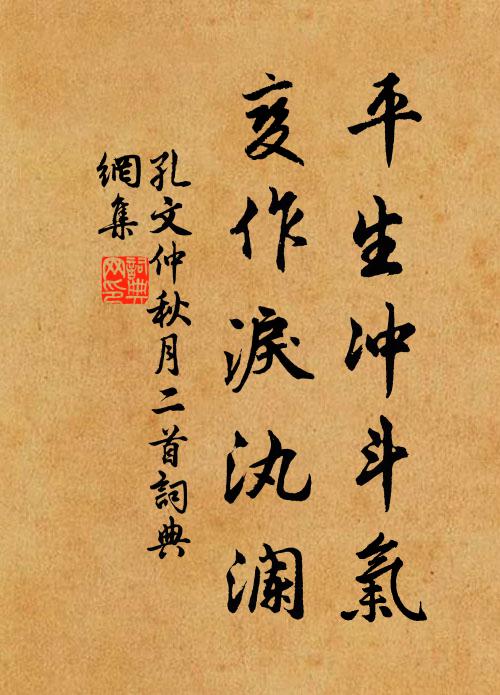 平生冲斗氣
変作淚汍澜
孔文仲秋月二首詞典
網集
詞典网印